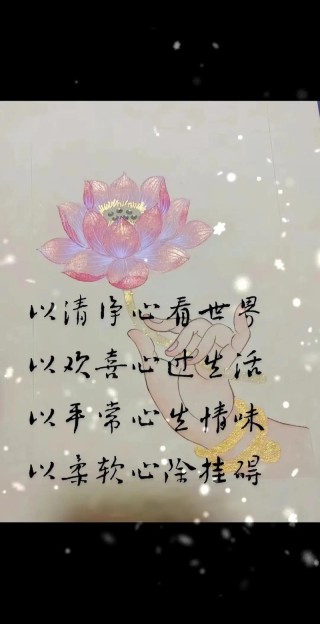 以清净心看世界
以欢喜心过生活
以平常心生情味
以柔软心除挂碍